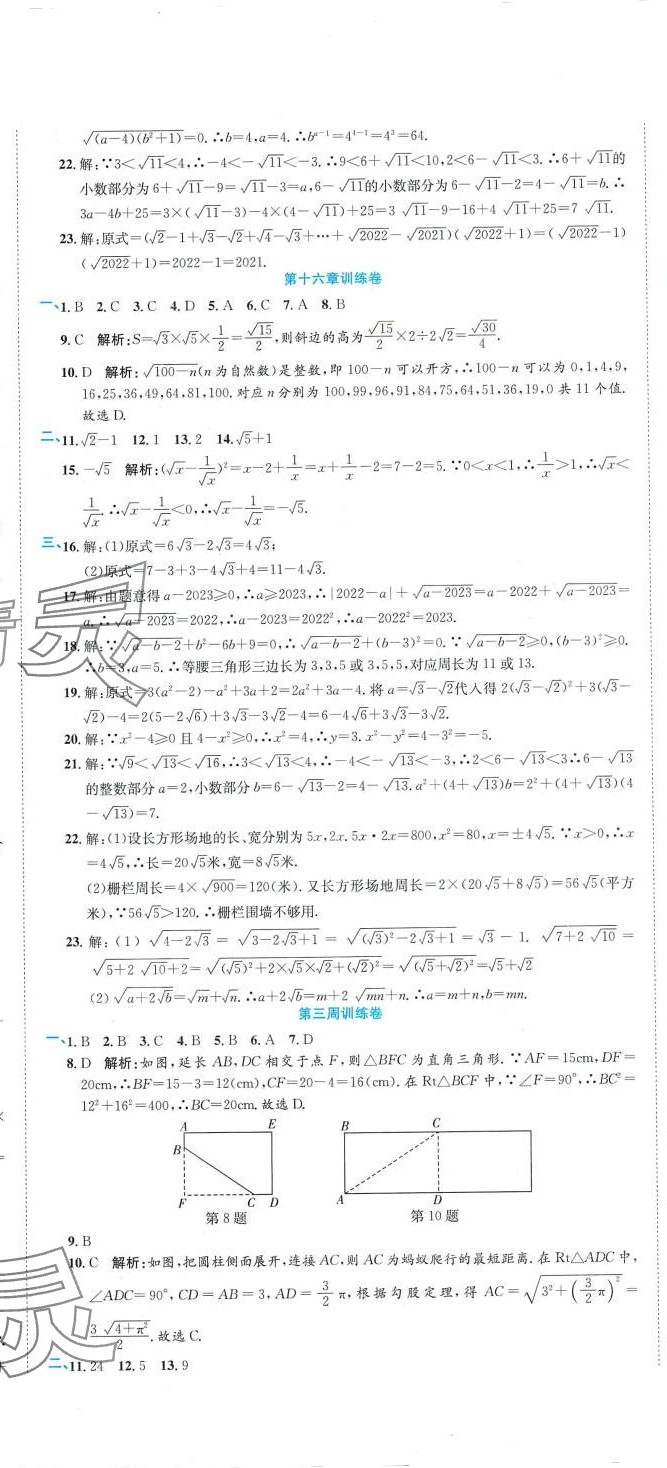 √(a-4)(b²+1)=0.∴b=4,a=4.∴b^(a-1)=4^(4-1)=4³=64.
22.解:∵3<√11<4,∴-4<-√11<-3.∴9<6+√11<10,2<6-√11<3.∴6+√11的
小数部分为6+√11-9=√11-3=a,6-√11的小数部分为6-√11-2=4-√11=b.∴
3a-4b+25=3×(√11-3)-4×(4-√11)+25=3√11-9-16+4√11+25=7√11.
23.解:原式=(√2-1+√3-√2+√4-√3+…+√2022-√2021)(√2022+1)=(√2022-1)
(√2022+1)=2022-1=2021.
第十六章训练卷
一、1.B 2.C 3.C 4.D 5.A 6.C 7.A 8.B
9.C 解析:S=√3×√5×1/2=√15/2,则斜边的高为√15/2×2÷2√2=√30/4.
10.D 解析:√100-n(n为自然数)是整数,即100-n可以开方,∴100-n可以为0,1,4,9,
16,25,36,49,64,81,100.对应n分别为100,99,96,91,84,75,64,51,36,19,0共11个值.
故选D.
二、11.√2-1 12.1 13.2 14.√5+1
15.-√5 解析:(√x-1/√x)²=x-2+1/x=x+1/x-2=7-2=5.∵0<x<1,∴1/x>1,∴√x<
1/√x.∴√x-1/√x<0,∴√x-1/√x=-√5.
三、16.解:(1)原式=6√3-2√3=4√3;
(2)原式=7-3+3-4√3+4=11-4√3.
17.解:由题意得a-2023≥0,∴a≥2023,∴|2022-a|+√a-2023=a-2022+√a-2023=
a,∴√a-2023=2022,∴a-2023=2022²,∴a-2022²=2023.
18.解:∵√a-b-2+b²-6b+9=0,∴√a-b-2+(b-3)²=0.∵√a-b-2≥0,(b-3)²≥0.
∴b=3,a=5.∴等腰三角形三边长为3,3,5或3,5,5,对应周长为11或13.
19.解:原式=3(a²-2)-a²+3a+2=2a²+3a-4.将a=√3-√2代入得2(√3-√2)²+3(√3-
√2)-4=2(5-2√6)+3√3-3√2-4=6-4√6+3√3-3√2.
20.解:∵x²-4≥0且4-x²≥0,∴x²=4,∴y=3.x²-y²=4-3²=-5.
21.解:∵√9<√13<√16,∴3<√13<4,∴-4<-√13<-3,∴2<6-√13<3∴6-√13
的整数部分a=2,小数部分b=6-√13-2=4-√13.a²+(4+√13)b=2²+(4+√13)(4
-√13)=7.
22.解:(1)设长方形场地的长、宽分别为5x,2x.5x·2x=800,x²=80,x=±4√5.∵x>0,∴x
=4√5,∴长=20√5米,宽=8√5米.
(2)栅栏周长=4×√900=120(米).又长方形场地周长=2×(20√5+8√5)=56√5(平方
米),∵56√5>120.∴栅栏围墙不够用.
23.解:(1)√4-2√3=√3-2√3+1=√(√3)²-2√3+1=√3-1. √7+2√10=
√5+2√10+2=√(√5)²+2×√5×√2+(√2)²=√(√5+√2)²=√5+√2
(2)√a+2√b=√m+√n.∴a+2√b=m+2√mn+n.∴a=m+n,b=mn.
第三周训练卷
一、1.B 2.B 3.C 4.B 5.B 6.A 7.D
8.D 解析:如图,延长AB,DC相交于点F,则△BFC为直角三角形.∵AF=15cm,DF=
20cm,∴BF=15-3=12(cm),CF=20-4=16(cm).在Rt△BCF中,∵∠F=90°,∴BC²=
12²+16²=400,∴BC=20cm.故选D.
A E B C
B
F C D A D
第8题 第10题
9.B
10.C 解析:如图,把圆柱侧面展开,连接AC,则AC为蚂蚁爬行的最短距离.在Rt△ADC中,
∠ADC=90°,CD=AB=3,AD=3/2π,根据勾股定理,得AC=√3²+(3/2π)²=
3√4+π²/2.故选C.
二、11.24 12.5 13.9
精灵
灵